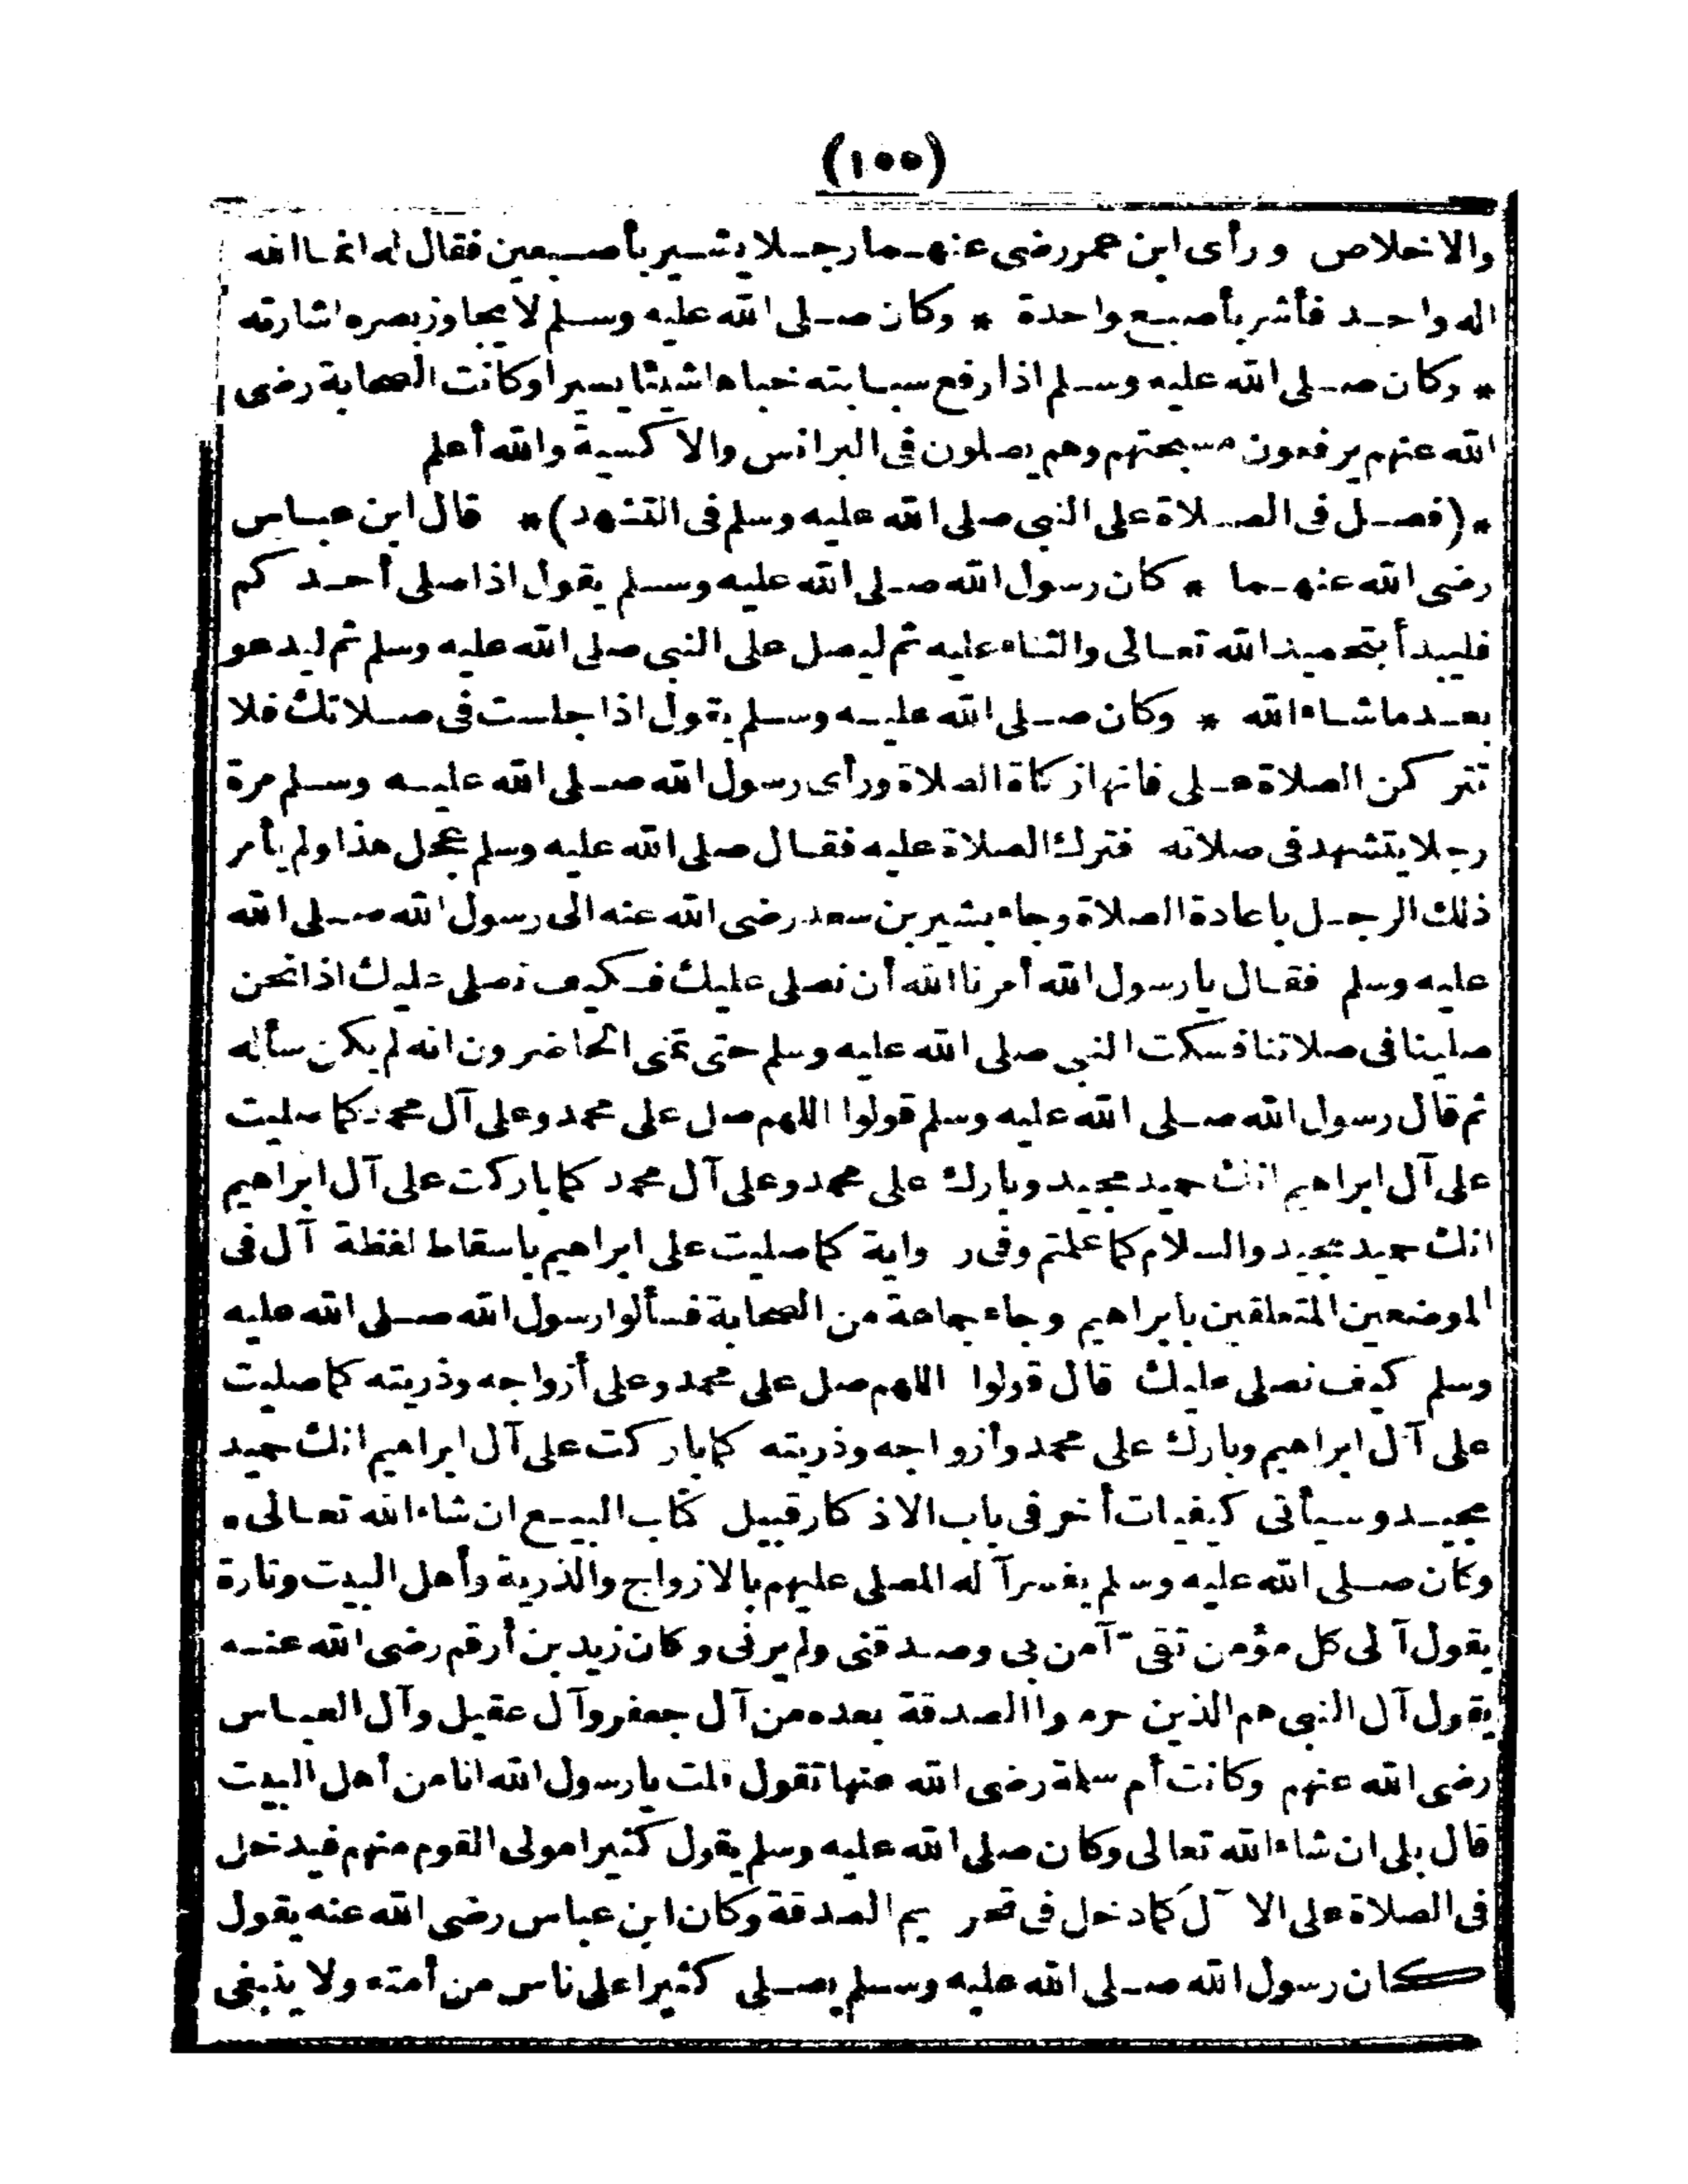 (١٠٠)
والاخلاص ورأى ابن عمر رضى عنهما رجلا يشير بأصبعين فقال له انما الله
اله واحد فأشر بأصبع واحدة * وكان صلى الله عليه وسلم لا يجاوز بصره اشارته
* وكان صلى الله عليه وسلم اذا رفع سبابته حناها شيئا يسيرا وكانت الصحابة رضى
الله عنهم يرفعون مسبحتهم وهم يصلون فى البرانس والاكسية والله أعلم
*(فصل فى الصلاة على النبى صلى الله عليه وسلم فى التشهد)* قال ابن عباس
رضى الله عنهما * كان رسول الله صلى الله عليه وسلم يقول اذا صلى أحدكم
فليبدأ بتحميد الله تعالى والثناء عليه ثم ليصل على النبى صلى الله عليه وسلم ثم ليدعو
بعد ما شاء الله * وكان صلى الله عليه وسلم يقول اذا جلست فى صلاتك فلا
تتركن الصلاة على فانها زكاة الصلاة ورأى رسول الله صلى الله عليه وسلم مرة
رجلا يتشهد فى صلاته فترك الصلاة عليه فقال صلى الله عليه وسلم عجل هذا ولم يأمر
ذلك الرجل باعادة الصلاة وجاء بشير بن سعد رضى الله عنه الى رسول الله صلى الله
عليه وسلم فقال يا رسول الله أمرنا الله أن نصلى عليك فكيف نصلى عليك اذا نحن
صلينا فى صلاتنا فسكت النبى صلى الله عليه وسلم حتى تمنى الحاضرون انه لم يكن سأله
ثم قال رسول الله صلى الله عليه وسلم قولوا اللهم صل على محمد وعلى آل محمد كما صليت
على آل ابراهيم انك حميد مجيد وبارك على محمد وعلى آل محمد كما باركت على آل ابراهيم
انك حميد مجيد والسلام كما علمتم وفى رواية كما صليت على ابراهيم باسقاط لفظة آل فى
الموضعين المتعلقين بابراهيم وجاء جماعة من الصحابة فسألوا رسول الله صلى الله عليه
وسلم كيف نصلى عليك قال قولوا اللهم صل على محمد وعلى أزواجه وذريته كما صليت
على آل ابراهيم وبارك على محمد وأزواجه وذريته كما باركت على آل ابراهيم انك حميد
مجيد وسيأتى كيفيات أخر فى باب الاذكار قبيل كتاب البيع ان شاء الله تعالى *
وكان صلى الله عليه وسلم يفسر آله المصلى عليهم بالازواج والذرية وأهل البيت وتارة
يقول آلى كل مؤمن تقى آمن بى وصدقنى ولم يرنى وكان زيد بن أرقم رضى الله عنه
يقول آل النبى هم الذين حرموا الصدقة بعده من آل جعفر وآل عقيل وآل العباس
رضى الله عنهم وكانت أم سلمة رضى الله عنها تقول قلت يا رسول الله انا من أهل البيت
قال بلى ان شاء الله تعالى وكان صلى الله عليه وسلم يقول كثيرا مولى القوم منهم فيدخل
فى الصلاة على الآل كما دخل فى تحريم الصدقة وكان ابن عباس رضى الله عنه يقول
كان رسول الله صلى الله عليه وسلم يصلى كثيرا على ناس من أمته ولا ينبغى